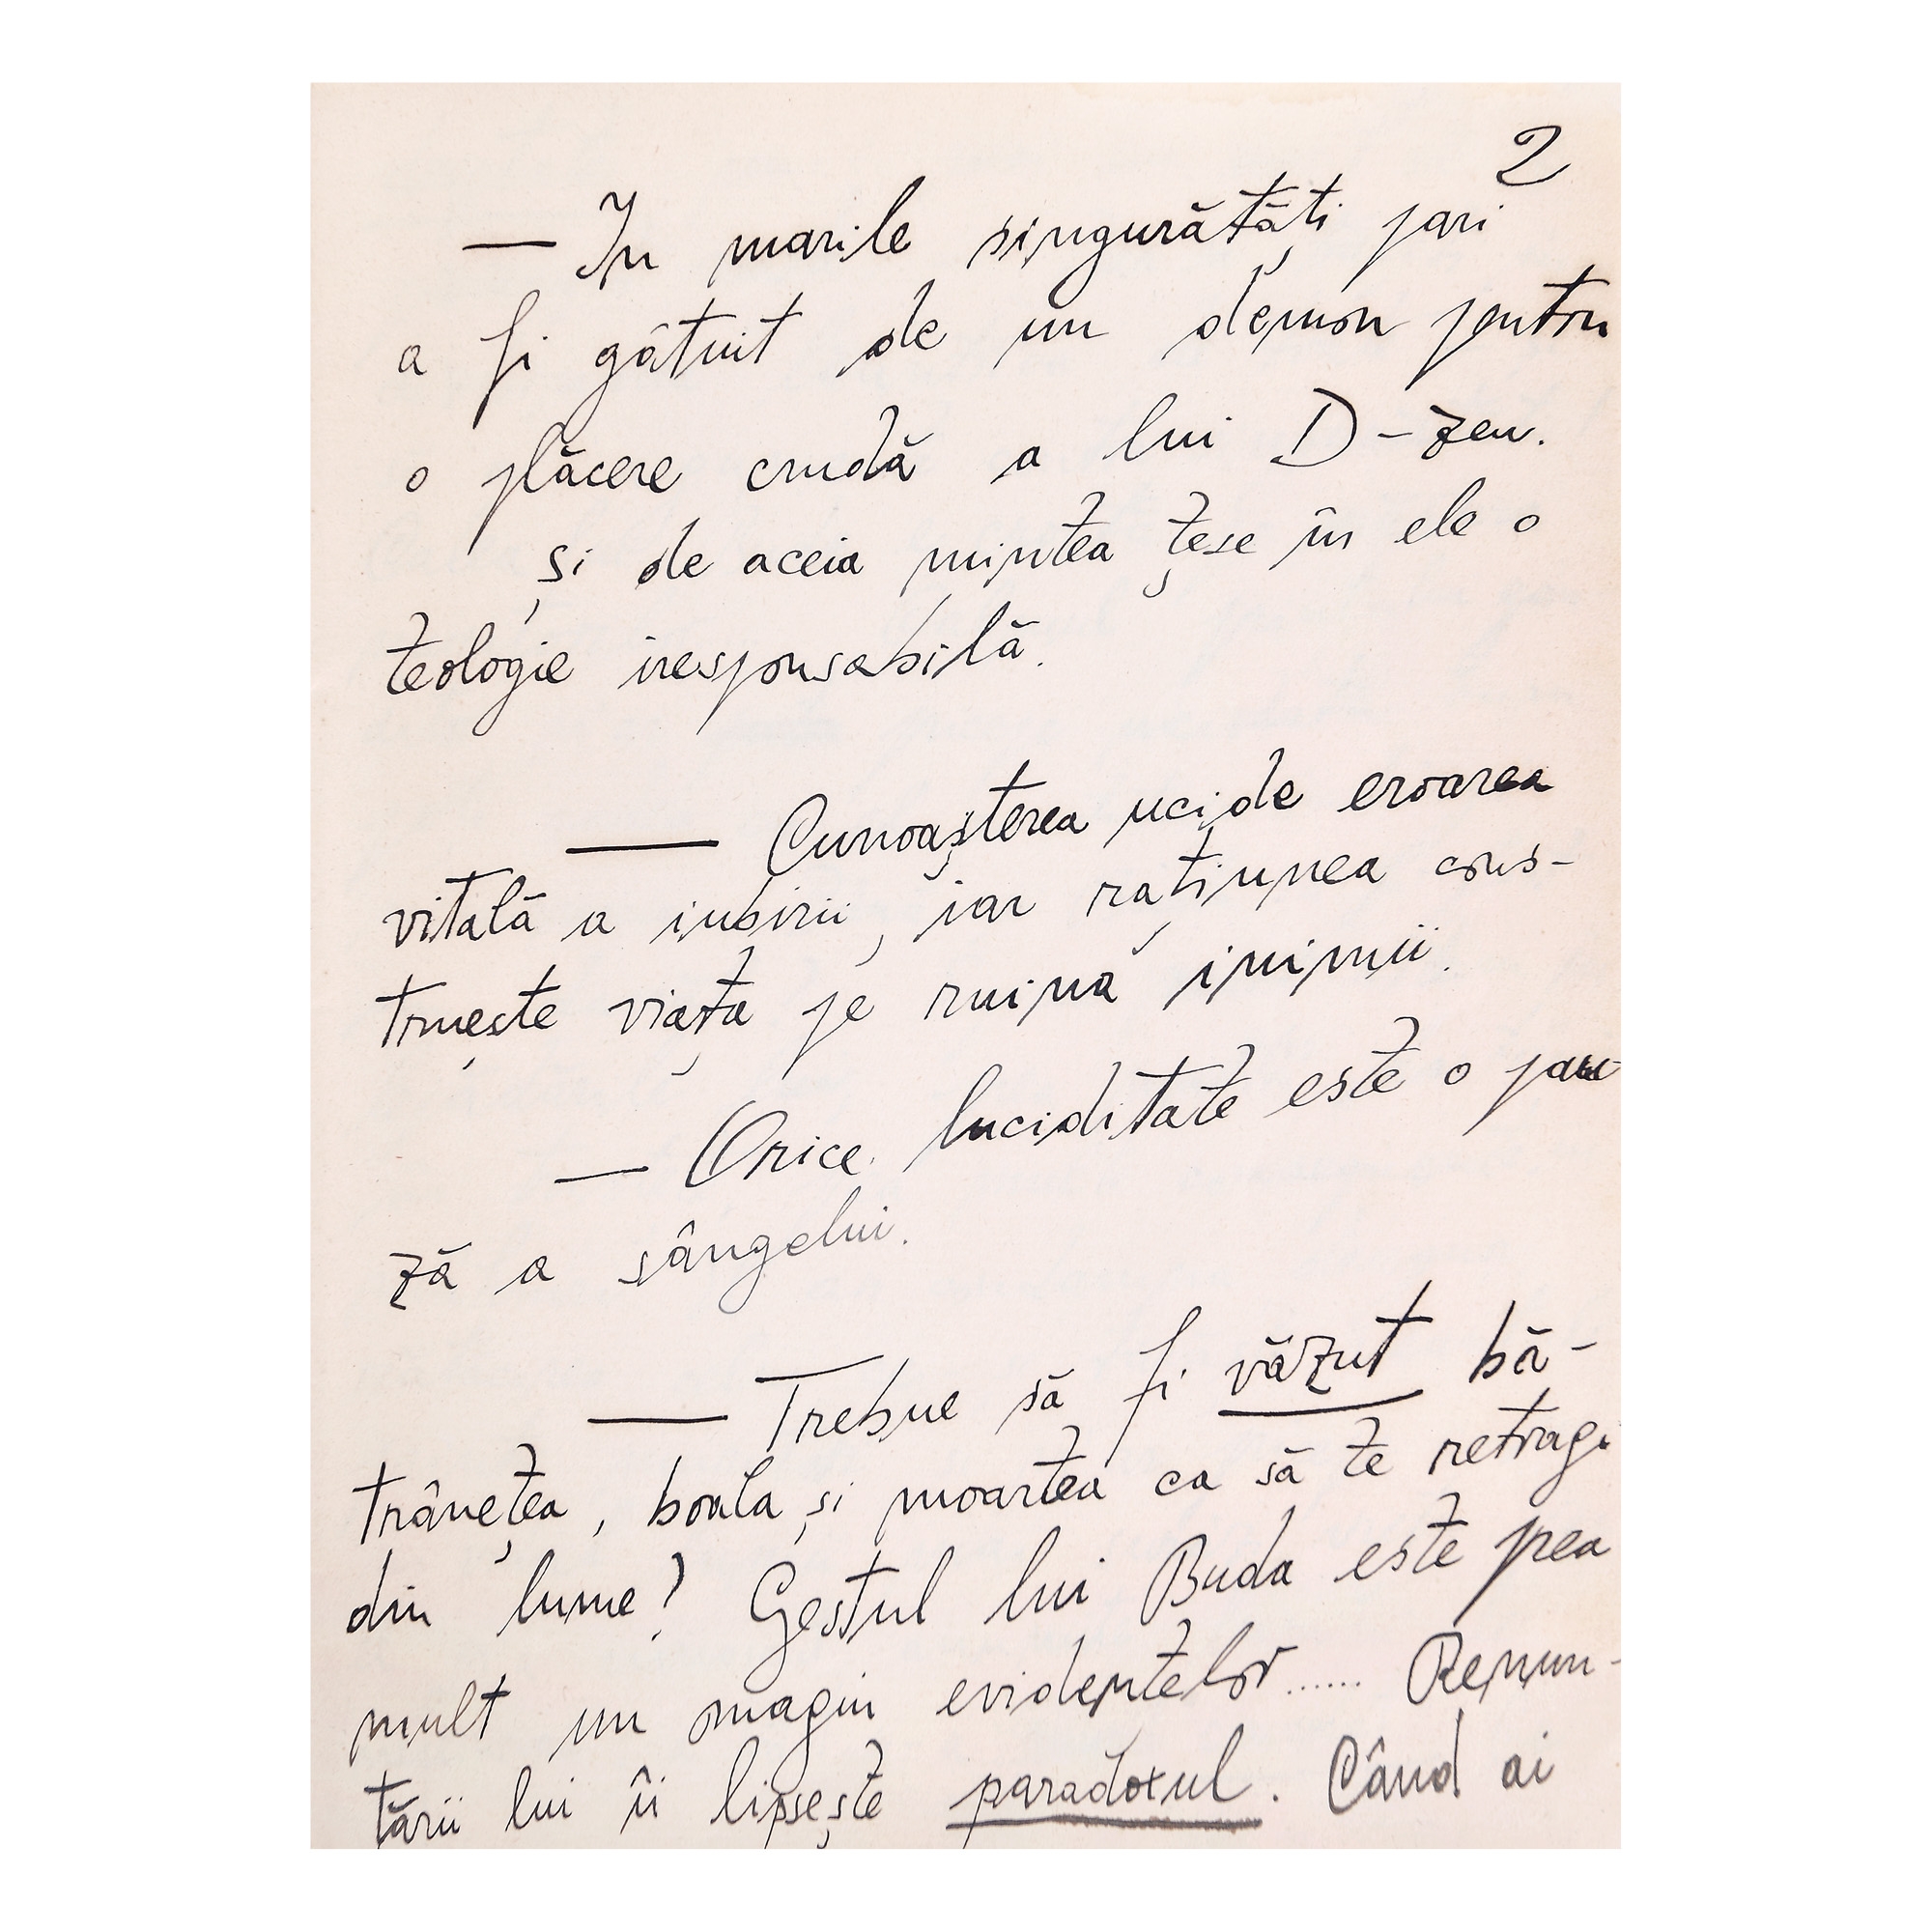 2
— In marile singurătăți pari
a fi gâtuit de un demon pentru
o plăcere crudă a lui D-zeu.
și de aceia mintea țese în ele o
teologie iresponsabilă.
— Cunoașterea ucide eroarea
vitală a iubirii, iar rațiunea cons-
truește viața pe ruina inimii.
— Orice luciditate este o pau-
ză a sângelui.
— Trebue să fi văzut bă-
trânețea, boala și moartea ca să te retragi
din lume? Gestul lui Buda este prea
mult un omagiu evidentelor...... Renun-
țării lui îi lipsește paradoxul. Când ai